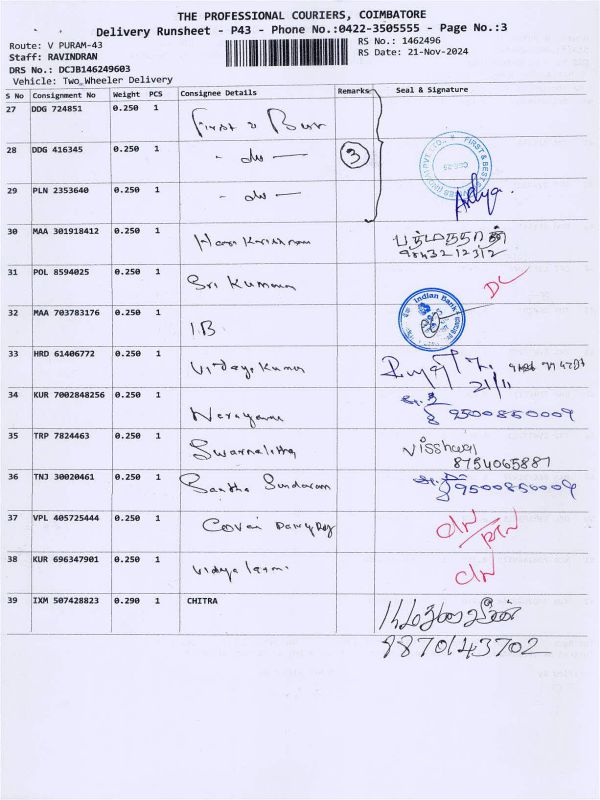 THE PROFESSIONAL COURIERS, COIMBATORE
Delivery Runsheet - P43 - Phone No.:0422-3505555 - Page No.:3
Route: V PURAM-43
RS No.: 1462496
Staff: RAVINDRAN
RS Date: 21-Nov-2024
DRS No.: DCJB146249603
Vehicle: Two Wheeler Delivery
S No Consignment No Weight PCS Consignee Details Remarks Seal & Signature
27 DDG 724851 0.250 1 First & Best
28 DDG 416345 0.250 1 - do - 3
FIRST & BEST
29 PLN 2353640 0.250 1 - do -
30 MAA 301918412 0.250 1 Hari Krishnan
9843212312
31 POL 8594025 0.250 1 Sri Kumaran
DL
32 MAA 703783176 0.250 1 IB Indian Bank
33 HRD 61406772 0.250 1 Vidaya Kumar
21/11
34 KUR 7002848256 0.250 1 Narayanan
9500850009
35 TRP 7824463 0.250 1 Swarnalatha Visshaal
8754065887
36 TNJ 30020461 0.250 1 Santha Sundaram 9500850009
37 VPL 405725444 0.250 1 Covai
38 KUR 696347901 0.250 1 Vidya Laxmi
39 IXM 507428823 0.290 1 CHITRA
8870143702